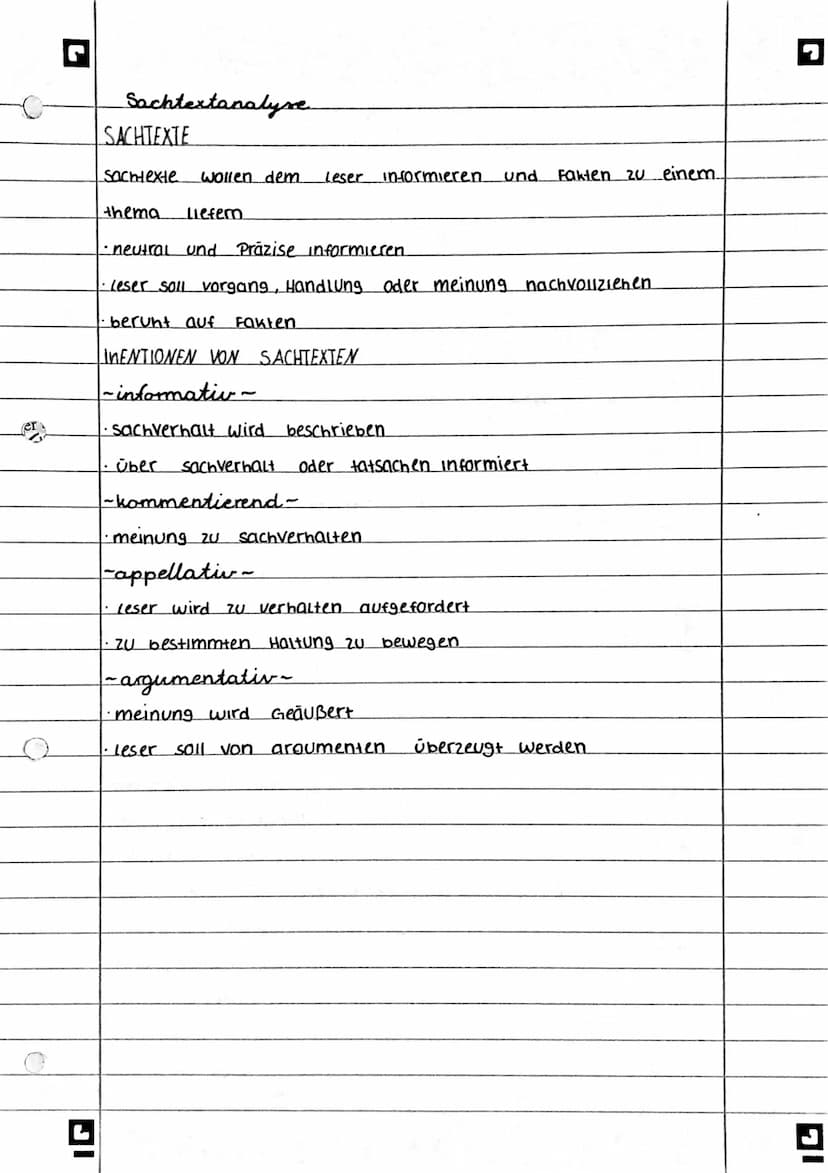 Sachtextanalyse
SACHTEXTE
Sachtexte wollen dem Leser informieren und Fakten zu einem
thema liefern
· neutral und Präzise informieren
· Leser soll vorgang, Handlung oder meinung nachvollziehen
· beruht auf Fakten
INENTIONEN VON SACHTEXTEN
~informativ~
· sachverhalt wird beschrieben
· über sachverhalt oder tatsachen informiert
~kommentierend~
· meinung zu sachverhalten
~appellativ~
· Leser wird zu verhalten aufgefordert
· zu bestimmten Haltung zu bewegen
~argumentativ~
· meinung wird Geäußert
· Leser soll von argumenten überzeugt werden